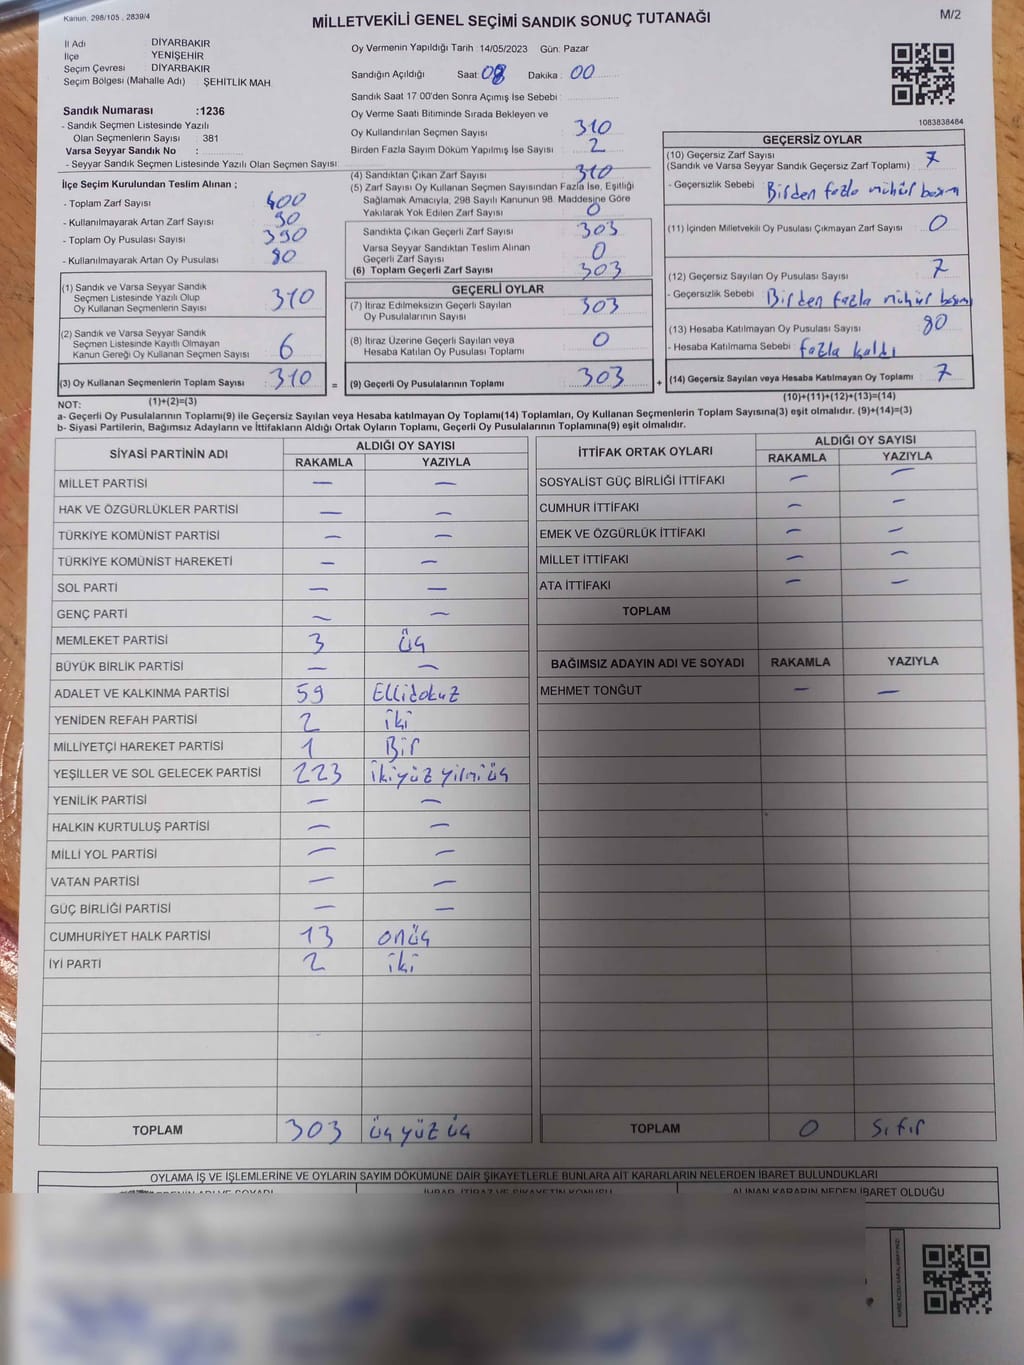 Kanun. 298/105 , 2839/4
MİLLETVEKİLİ GENEL SEÇİMİ SANDIK SONUÇ TUTANAĞI
M/2
İl Adı DİYARBAKIR
İlçe YENİŞEHİR
Seçim Çevresi DİYARBAKIR
Seçim Bölgesi (Mahalle Adı) ŞEHİTLİK MAH
Sandık Numarası :1236
- Sandık Seçmen Listesinde Yazılı
Olan Seçmenlerin Sayısı : 381
Varsa Seyyar Sandık No :
- Seyyar Sandık Seçmen Listesinde Yazılı Olan Seçmen Sayısı
İlçe Seçim Kurulundan Teslim Alınan ;
- Toplam Zarf Sayısı 400
- Kullanılmayarak Artan Zarf Sayısı : 90
- Toplam Oy Pusulası Sayısı 390
- Kullanılmayarak Artan Oy Pusulası 80
(1) Sandık ve Varsa Seyyar Sandık
Seçmen Listesinde Yazılı Olup
Oy Kullanan Seçmen Sayısı 310
(2) Sandık ve Varsa Seyyar Sandık
Seçmen Listesinde Kayıtlı Olmayan
Kanun Gereği Oy Kullanan Seçmen Sayısı 6
(3) Oy Kullanan Seçmenlerin Toplam Sayısı 310 =
Oy Vermenin Yapıldığı Tarih :14/05/2023 Gün: Pazar
Sandığın Açıldığı Saat: 08 Dakika : 00
Sandık Saat 17:00'den Sonra Açımış İse Sebebi :
Oy Verme Saati Bitiminde Sırada Bekleyen ve
Oy Kullandırılan Seçmen Sayısı 310
Birden Fazla Sayım Döküm Yapılmış İse Sayısı : 2
(4) Sandıktan Çıkan Zarf Sayısı 310
(5) Zarf Sayısı Oy Kullanan Seçmen Sayısından Fazla İse, Eşitliği
Sağlamak Amacıyla, 298 Sayılı Kanunun 98. Maddesine Göre
Yakılarak Yok Edilen Zarf Sayısı 0
Sandıkta Çıkan Geçerli Zarf Sayısı : 303
Varsa Seyyar Sandıktan Teslim Alınan
Geçerli Zarf Sayısı 0
(6) Toplam Geçerli Zarf Sayısı 303
GEÇERLİ OYLAR
(7) İtiraz Edilmeksizin Geçerli Sayılan
Oy Pusulalarının Sayısı 303
(8) İtiraz Üzerine Geçerli Sayılan veya
Hesaba Katılan Oy Pusulası Toplamı 0
(9) Geçerli Oy Pusulalarının Toplamı 303 +
1083838484
GEÇERSİZ OYLAR
(10) Geçersiz Zarf Sayısı
(Sandık ve Varsa Seyyar Sandık Geçersiz Zarf Toplamı) 7
- Geçersizlik Sebebi : Birden fazla mühür basım
(11) İçinden Milletvekili Oy Pusulası Çıkmayan Zarf Sayısı 0
(12) Geçersiz Sayılan Oy Pusulası Sayısı 7
- Geçersizlik Sebebi Birden fazla mühür basım
(13) Hesaba Katılmayan Oy Pusulası Sayısı 80
- Hesaba Katılmama Sebebi : fazla kaldı
(14) Geçersiz Sayılan veya Hesaba Katılmayan Oy Toplamı 7
NOT: (1)+(2)=(3) (10)+(11)+(12)+(13)=(14)
a- Geçerli Oy Pusulalarının Toplamı(9) ile Geçersiz Sayılan veya Hesaba katılmayan Oy Toplamı(14) Toplamları, Oy Kullanan Seçmenlerin Toplam Sayısına(3) eşit olmalıdır. (9)+(14)=(3)
b- Siyasi Partilerin, Bağımsız Adayların ve İttifakların Aldığı Ortak Oyların Toplamı, Geçerli Oy Pusulalarının Toplamına(9) eşit olmalıdır.
SİYASİ PARTİNİN ADI ALDIĞI OY SAYISI
RAKAMLA YAZIYLA
MİLLET PARTİSİ — —
HAK VE ÖZGÜRLÜKLER PARTİSİ — —
TÜRKİYE KOMÜNİST PARTİSİ — —
TÜRKİYE KOMÜNİST HAREKETİ — —
SOL PARTİ — —
GENÇ PARTİ — —
MEMLEKET PARTİSİ 3 üç
BÜYÜK BİRLİK PARTİSİ — —
ADALET VE KALKINMA PARTİSİ 59 Ellidokuz
YENİDEN REFAH PARTİSİ 2 iki
MİLLİYETÇİ HAREKET PARTİSİ 1 Bir
YEŞİLLER VE SOL GELECEK PARTİSİ 223 ikiyüz yilmiüç
YENİLİK PARTİSİ — —
HALKIN KURTULUŞ PARTİSİ — —
MİLLİ YOL PARTİSİ — —
VATAN PARTİSİ — —
GÜÇ BİRLİĞİ PARTİSİ — —
CUMHURİYET HALK PARTİSİ 13 onüç
İYİ PARTİ 2 iki
TOPLAM 303 üçyüz üç
İTTİFAK ORTAK OYLARI ALDIĞI OY SAYISI
RAKAMLA YAZIYLA
SOSYALİST GÜÇ BİRLİĞİ İTTİFAKI — —
CUMHUR İTTİFAKI — —
EMEK VE ÖZGÜRLÜK İTTİFAKI — —
MİLLET İTTİFAKI — —
ATA İTTİFAKI — —
TOPLAM
BAĞIMSIZ ADAYIN ADI VE SOYADI RAKAMLA YAZIYLA
MEHMET TONĞUT — —
TOPLAM 0 Sıfır
OYLAMA İŞ VE İŞLEMLERİNE VE OYLARIN SAYIM DÖKÜMÜNE DAİR ŞİKAYETLERLE BUNLARA AİT KARARLARIN NELERDEN İBARET BULUNDUKLARI
ADI VE SOYADI İHBAR, İTİRAZ VE ŞİKAYETİN KONUSU ALINAN KARARIN NEDEN İBARET OLDUĞU